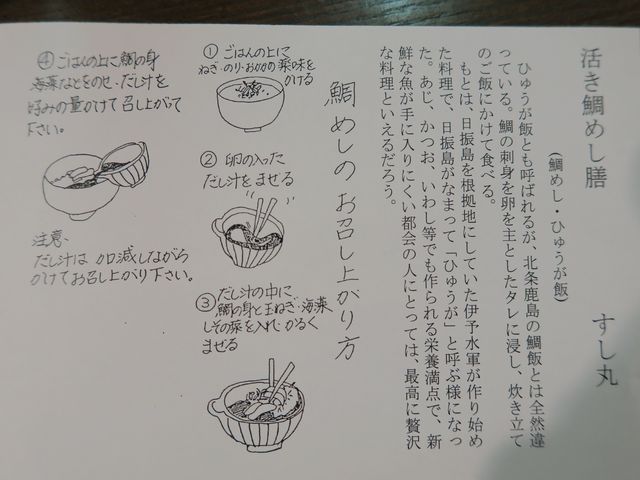 活き鯛めし膳
すし丸
(鯛めし・ひゅうが飯)
ひゅうが飯とも呼ばれるが、北条鹿島の鯛飯とは全然違
っている。鯛の刺身を卵を主としたタレに浸し、炊き立て
のご飯にかけて食べる。
もとは、日振島を根拠地にしていた伊予水軍が作り始め
た料理で、日振島がなまって「ひゅうが」と呼ぶ様になっ
た。あじ、かつお、いわし等でも作られる栄養満点で、新
鮮な魚が手に入りにくい都会の人にとっては、最高に贅沢
な料理といえるだろう。
鯛めしのお召し上がり方
① ごはんの上に
ねぎ・のり・おかかの薬味を
かける
② 卵の入った
だし汁をまぜる
③ だし汁の中に
鯛の身と玉ねぎ・海藻
しその葉を入れ かるく
まぜる
④ ごはんの上に鯛の身
海藻などをのせ・だし汁を
好みの量かけて召し上がって
下さい。
注意、
だし汁は 加減しながら
かけてお召し上がり下さい。